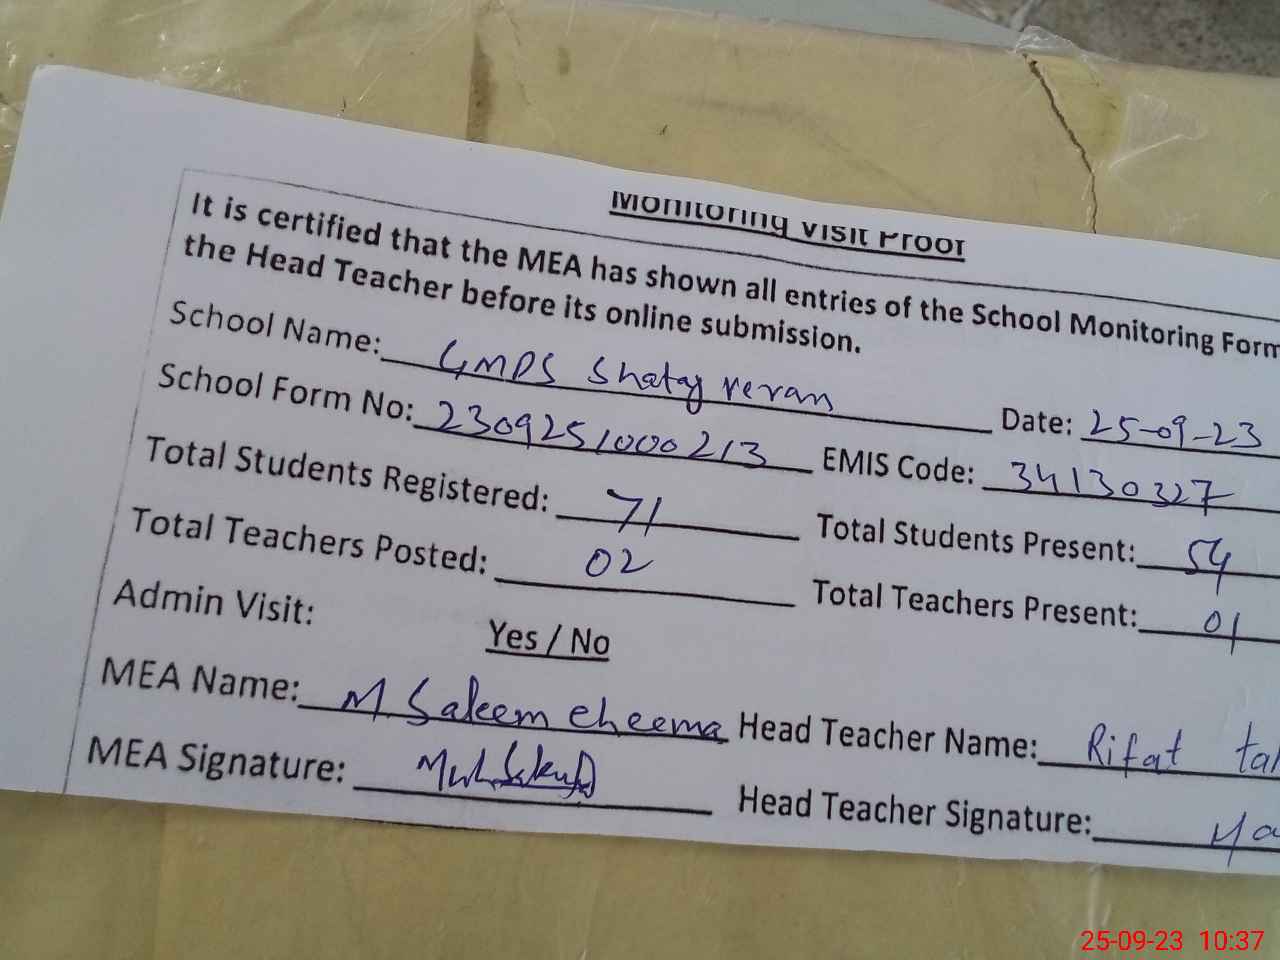 Monitoring Visit Proof
It is certified that the MEA has shown all entries of the School Monitoring Form
the Head Teacher before its online submission.
School Name: GMPS Shatag veran Date: 25-09-23
School Form No: 2309251000213 EMIS Code: 34130327
Total Students Registered: 71 Total Students Present: 54
Total Teachers Posted: 02 Total Teachers Present: 01
Admin Visit: Yes / No
MEA Name: M Saleem cheema Head Teacher Name: Rifat
MEA Signature: Head Teacher Signature:
25-09-23 10:37